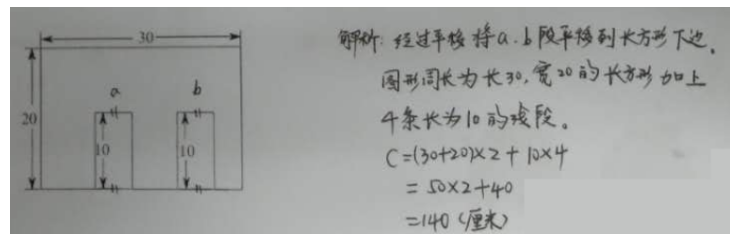 30
a
b
20
10
10
解析:经过平移将a.b段平移到长方形下边,
图形周长为长30,宽20的长方形加上
4条长为10的线段。
C=(30+20)×2+10×4
=50×2+40
=140(厘米)